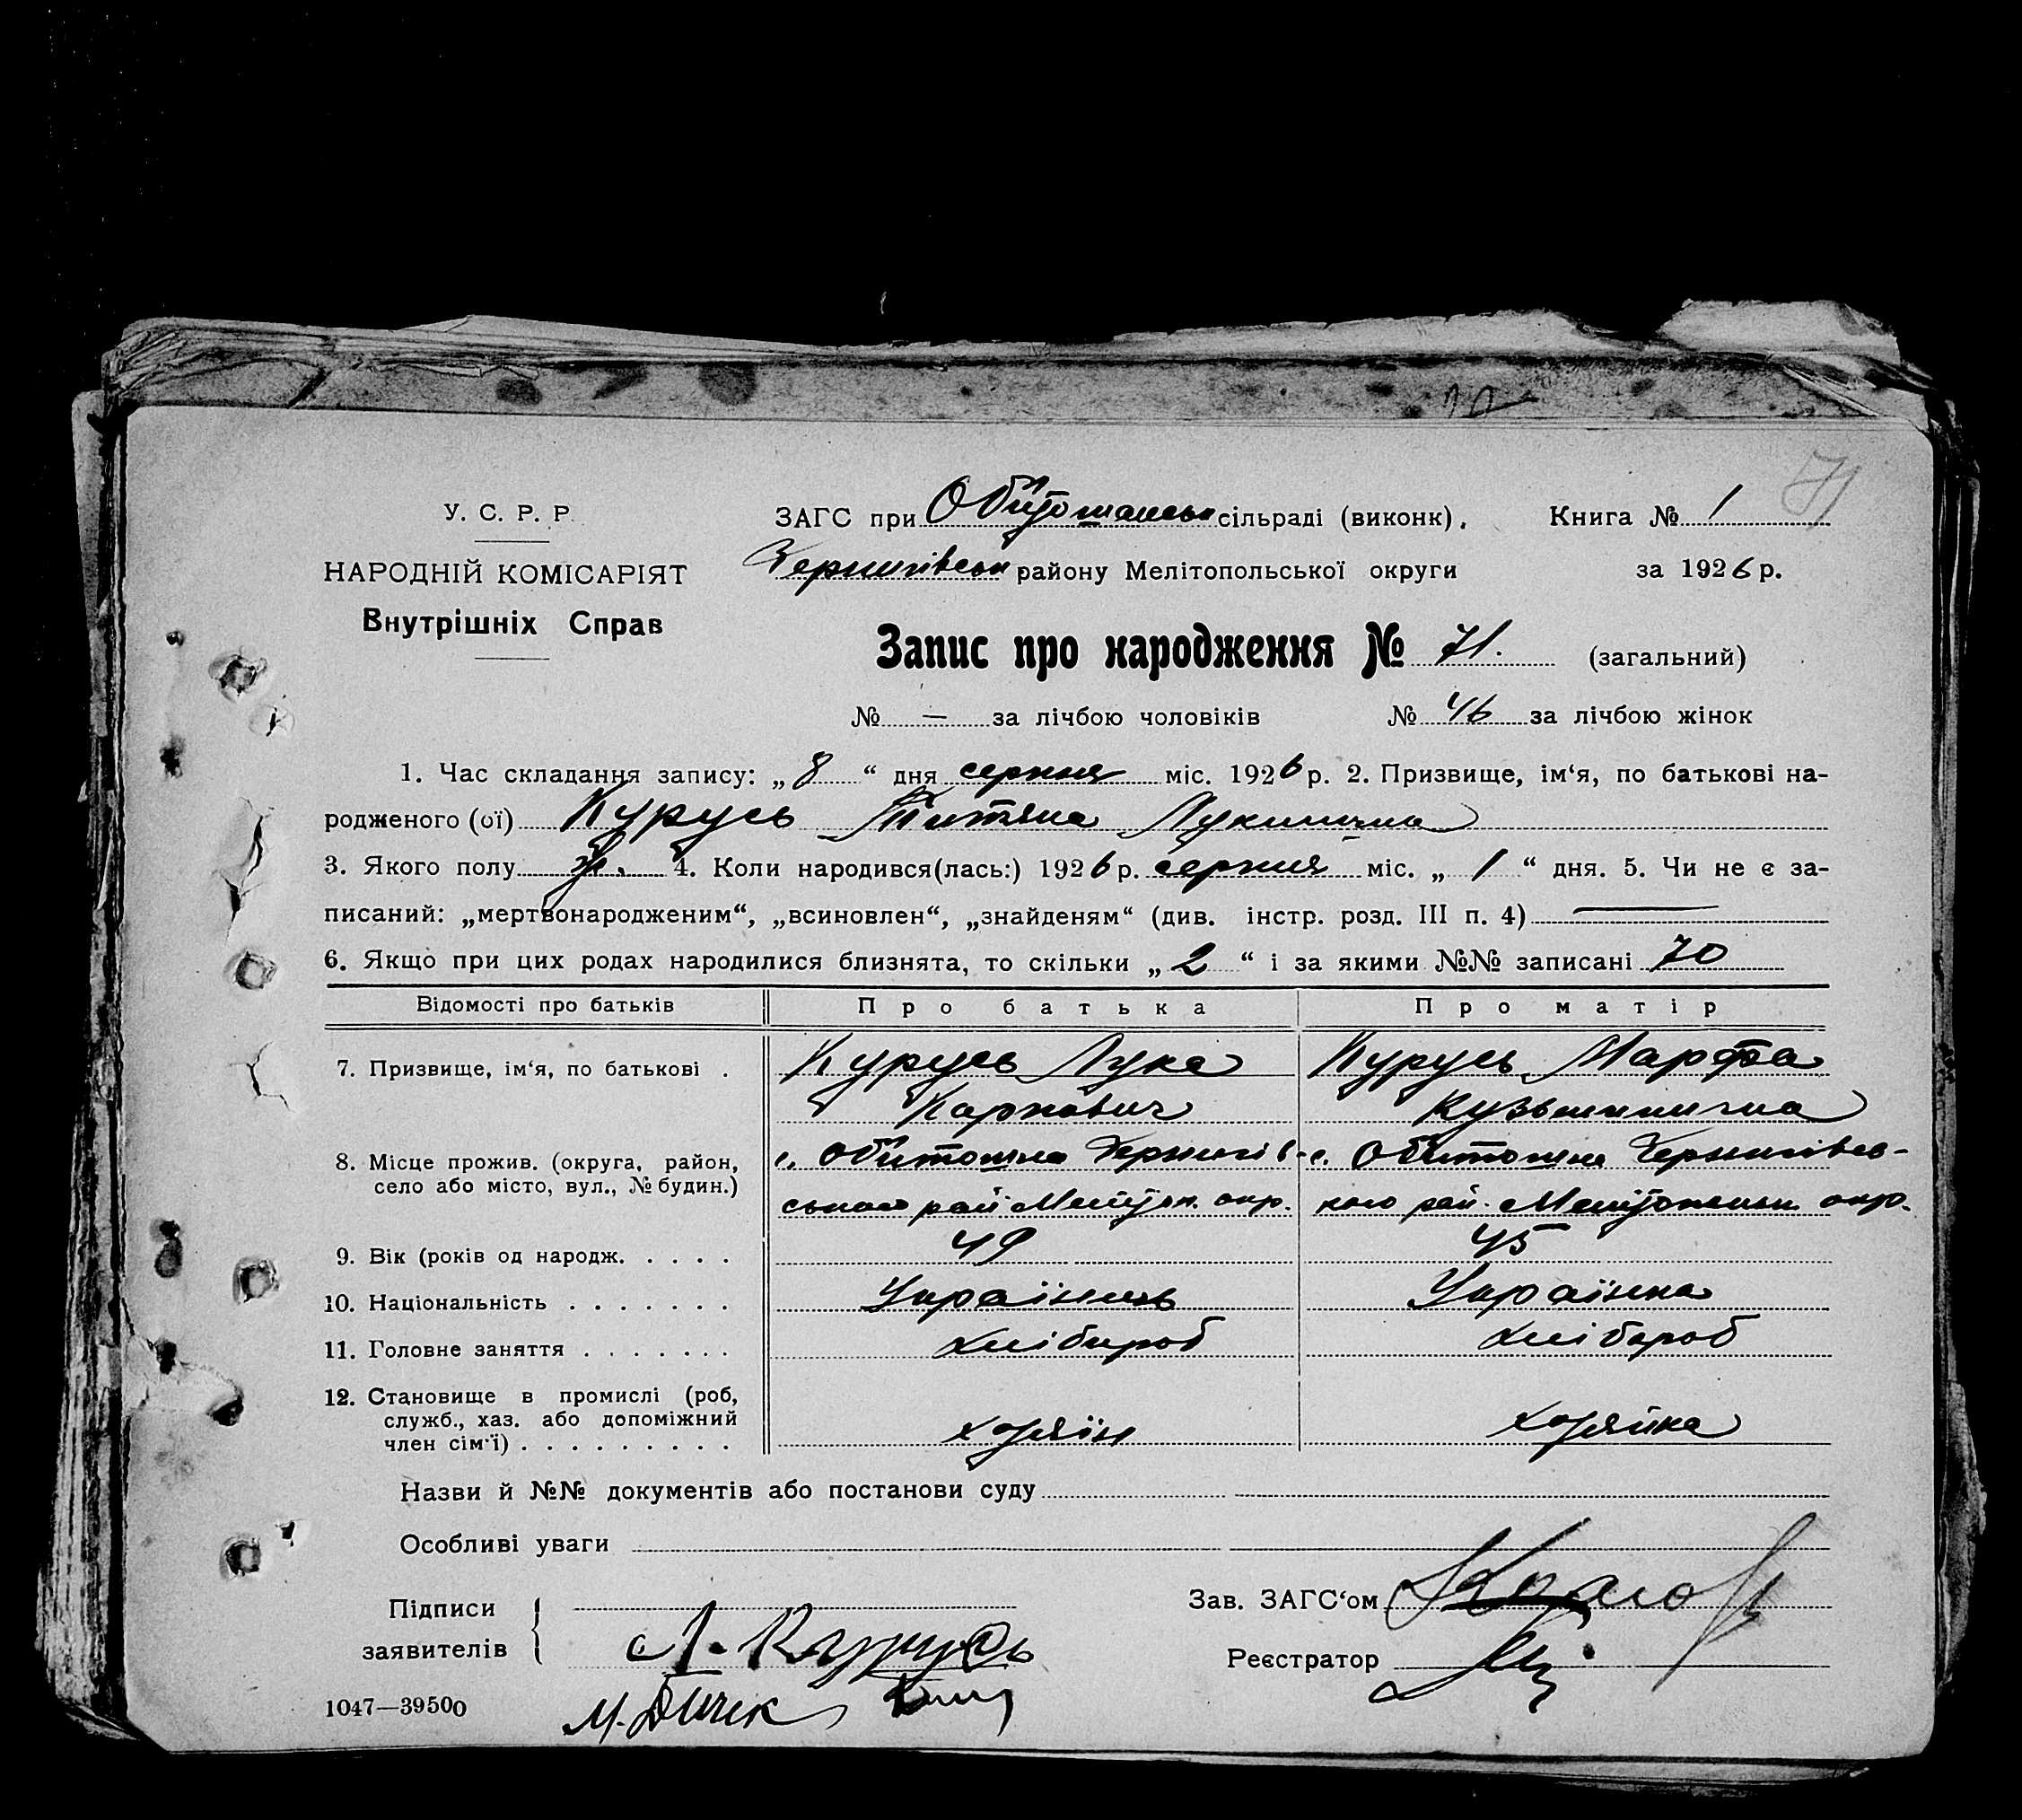 71
У. С. Р. Р.
НАРОДНІЙ КОМІСАРІЯТ
Внутрішніх Справ
ЗАГС при Обитошанськ сільраді (виконк).
Книга № 1
Чернигівськ району Мелітопольської округи
за 1926 р.
Запис про народження № 71. (загальний)
№ — за лічбою чоловіків № 46 за лічбою жінок
1. Час складання запису: „ 8 “ дня серпня міс. 1926 р. 2. Призвище, ім‘я, по батькові на-
родженого (ої) Курусь Титяна Лукинична
3. Якого полу ж. 4. Коли народився(лась:) 1926 р. серпня міс. „ 1 “ дня. 5. Чи не є за-
писаний: „мертвонародженим“, „всиновлен“, „знайденям“ (див. інстр. розд. III п. 4) —
6. Якщо при цих родах народилися близнята, то скільки „ 2 “ і за якими №№ записані 70
Відомості про батьків Про батька Про матір
7. Призвище, ім‘я, по батькові . Курусь Лука Курусь Марфа
Карпович Кузьминична
8. Місце прожив. (округа, район, с. Обиточна Чернигів- с. Обиточна Чернигівсь-
село або місто, вул., № будин.) ського рай. Меліт. окр. кого рай. окр.
9. Вік (років од народж. . . . . 49 45
10. Національність . . . . . . . Українець Українка
11. Головне заняття . . . . . . . хлібороб хлібороб
12. Становище в промислі (роб,
служб., хаз. або допоміжний
член сім‘ї) . . . . . . . . . хозяїн хозяйка
Назви й №№ документів або постанови суду
Особливі уваги
Підписи
заявителів
Л. Курусь
М.
Зав. ЗАГС‘ом
Реєстратор
1047—39500